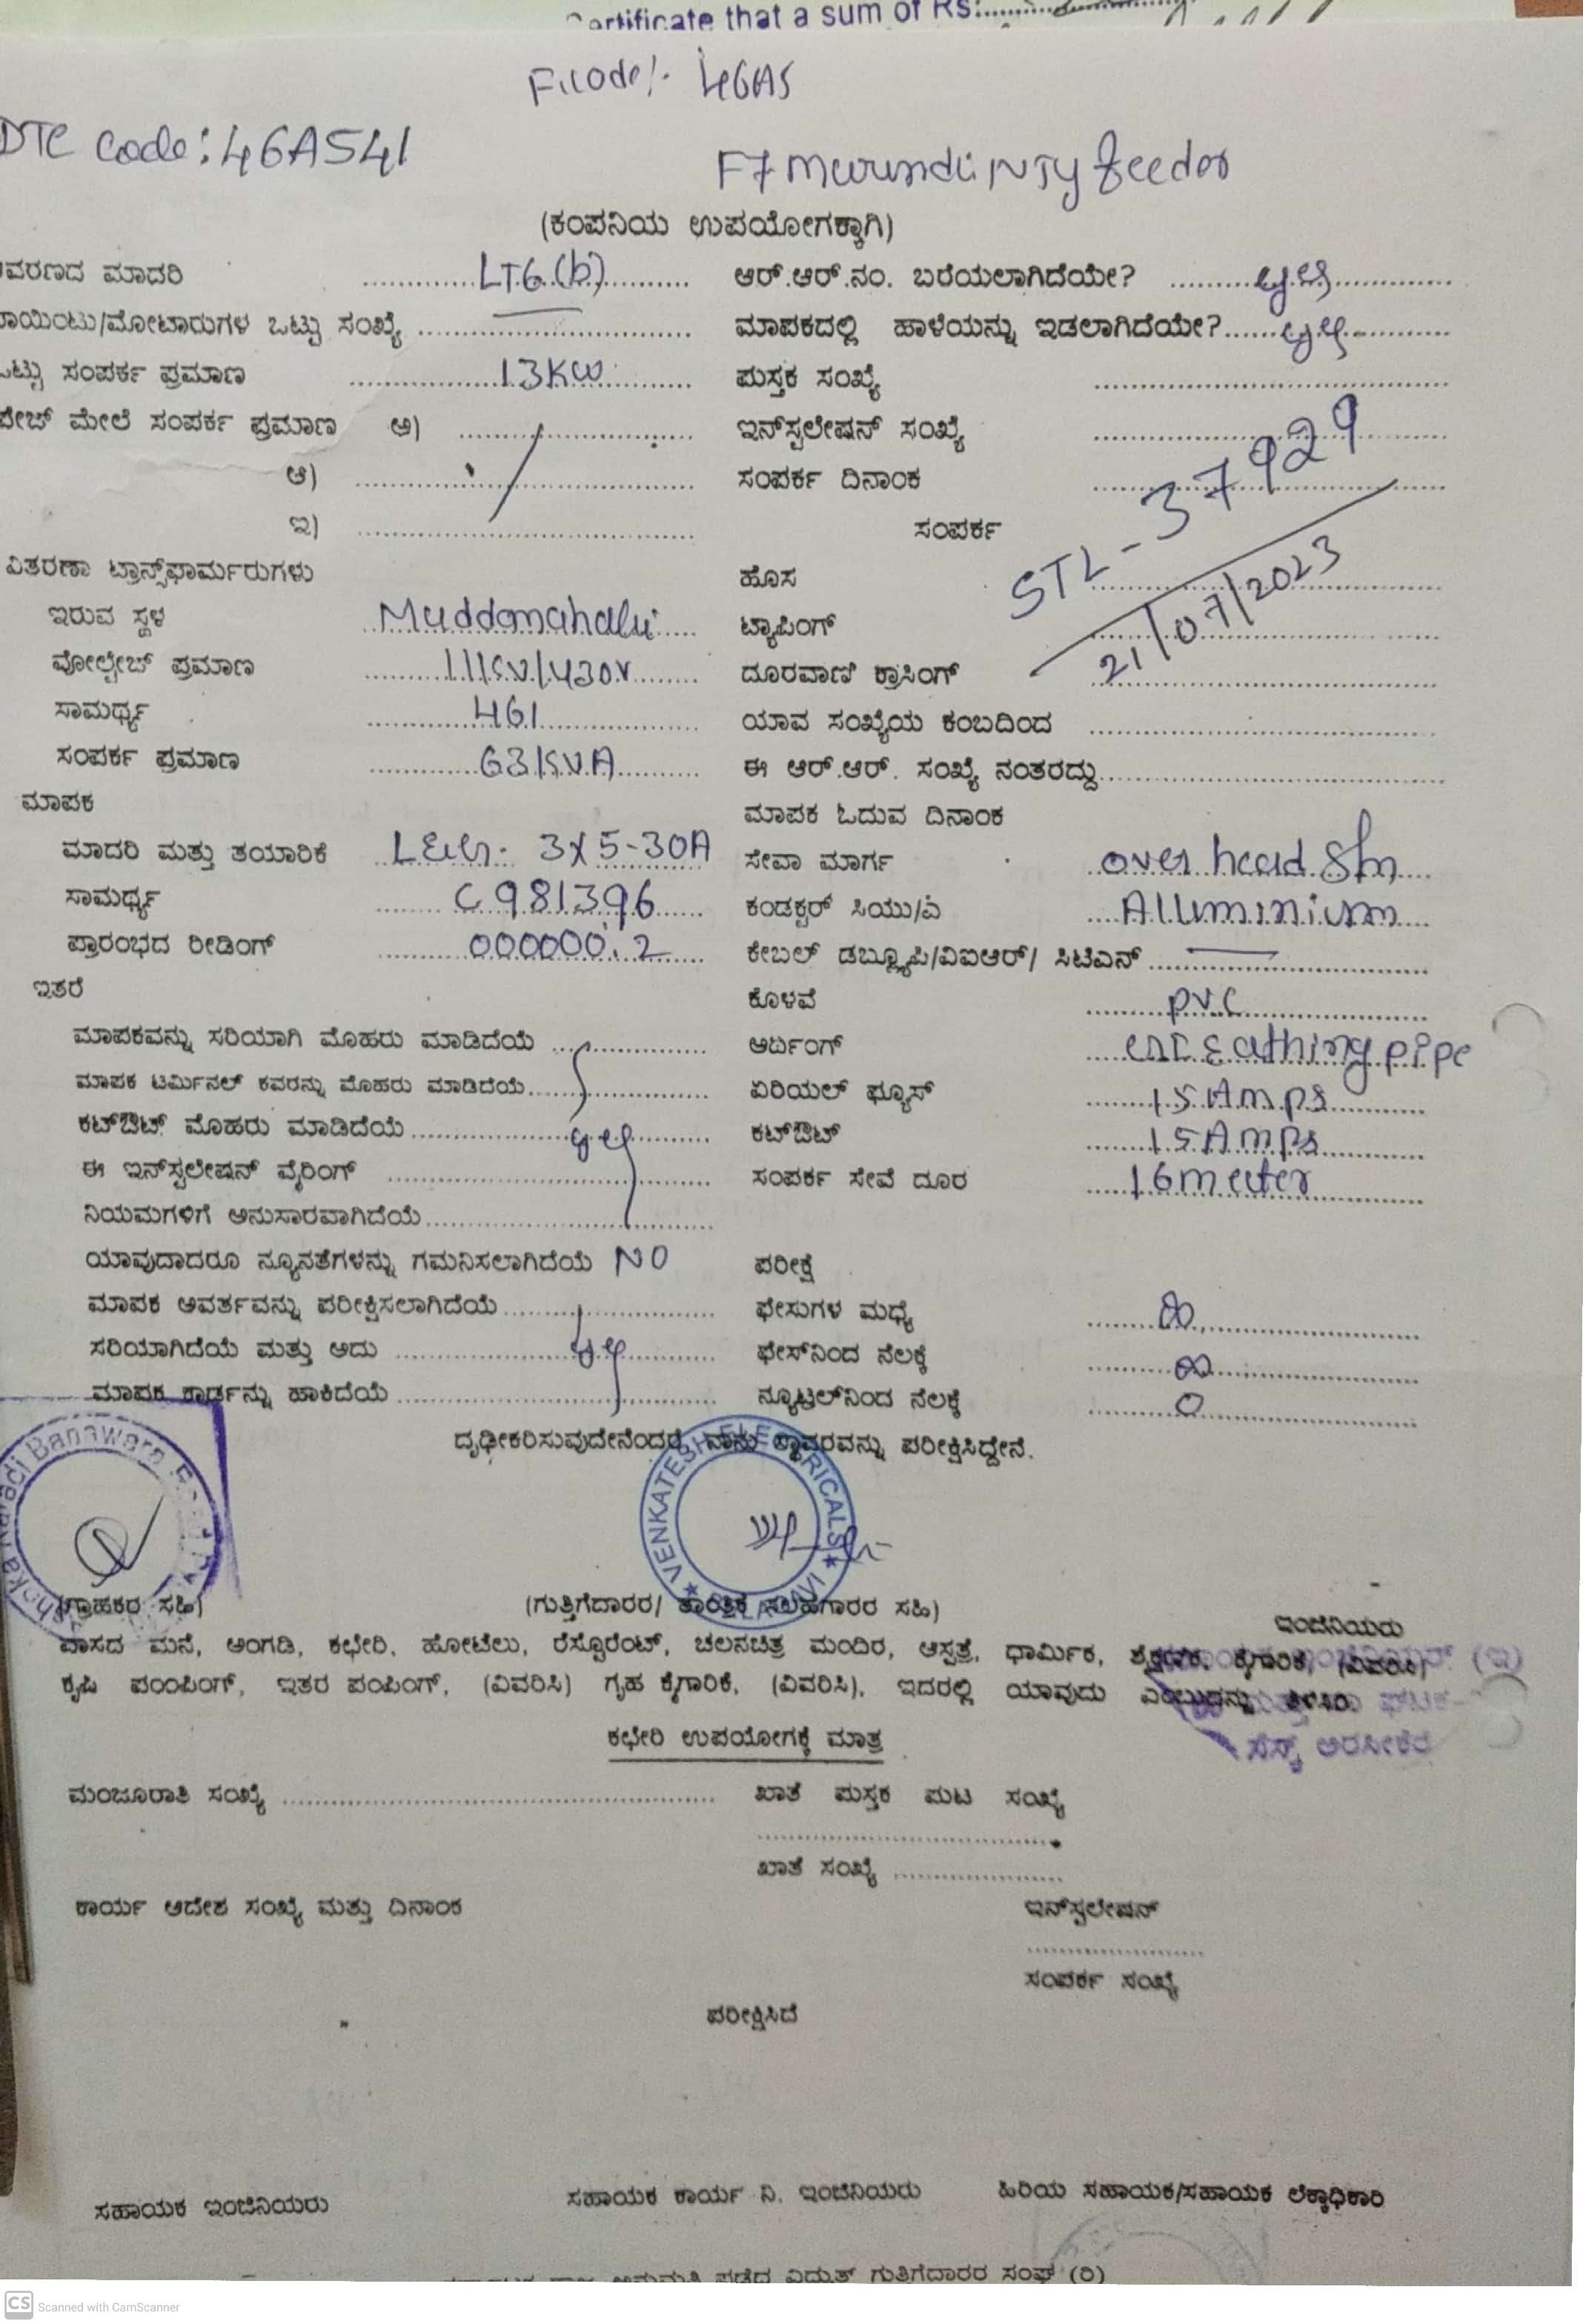 Certificate that a sum of Rs:
Fcode/- 46AS
DTC Code: 46AS41
F7 Murundi NJY feeder
(ಕಂಪನಿಯ ಉಪಯೋಗಕ್ಕಾಗಿ)
ವರಣದ ಮಾದರಿ LT6(b) ಆರ್.ಆರ್.ನಂ. ಬರೆಯಲಾಗಿದೆಯೇ?
ಾಯಿಂಟು/ಮೋಟಾರುಗಳ ಒಟ್ಟು ಸಂಖ್ಯೆ ಮಾಪಕದಲ್ಲಿ ಹಾಳೆಯನ್ನು ಇಡಲಾಗಿದೆಯೇ?
ಟ್ಟು ಸಂಪರ್ಕ ಪ್ರಮಾಣ 13KW ಪುಸ್ತಕ ಸಂಖ್ಯೆ
ಪೇಜ್ ಮೇಲೆ ಸಂಪರ್ಕ ಪ್ರಮಾಣ ಅ) ಇನ್‌ಸ್ಟಲೇಷನ್ ಸಂಖ್ಯೆ
ಆ) ಸಂಪರ್ಕ ದಿನಾಂಕ
ಇ) ಸಂಪರ್ಕ
STL-37929
21/07/2023
ವಿತರಣಾ ಟ್ರಾನ್ಸ್‌ಫಾರ್ಮರುಗಳು ಹೊಸ
ಇರುವ ಸ್ಥಳ Muddanahalli ಟ್ಯಾಪಿಂಗ್
ವೋಲ್ಟೇಜ್ ಪ್ರಮಾಣ 11KV/430V ದೂರವಾಣಿ ಕ್ರಾಸಿಂಗ್
ಸಾಮರ್ಥ್ಯ 461 ಯಾವ ಸಂಖ್ಯೆಯ ಕಂಬದಿಂದ
ಸಂಪರ್ಕ ಪ್ರಮಾಣ 63KVA ಈ ಆರ್.ಆರ್. ಸಂಖ್ಯೆ ನಂತರದ್ದು
ಮಾಪಕ ಮಾಪಕ ಓದುವ ದಿನಾಂಕ
ಮಾದರಿ ಮತ್ತು ತಯಾರಿಕೆ 3X5-30A ಸೇವಾ ಮಾರ್ಗ over head
ಸಾಮರ್ಥ್ಯ C981396 ಕಂಡಕ್ಟರ್ ಸಿಯು/ಎ Alluminium
ಪ್ರಾರಂಭದ ರೀಡಿಂಗ್ 000000.2 ಕೇಬಲ್ ಡಬ್ಲ್ಯೂಪಿ/ವಿಐಆರ್/ ಸಿಟಿಎನ್
ಇತರೆ ಕೊಳವೆ PVC
ಮಾಪಕವನ್ನು ಸರಿಯಾಗಿ ಮೊಹರು ಮಾಡಿದೆಯೆ ಆರ್ಥಿಂಗ್ Eathing pipe
ಮಾಪಕ ಟರ್ಮಿನಲ್ ಕವರನ್ನು ಮೊಹರು ಮಾಡಿದೆಯೆ ಏರಿಯಲ್ ಫ್ಯೂಸ್ 15 Amps
ಕಟ್‌ಔಟ್ ಮೊಹರು ಮಾಡಿದೆಯೆ ಕಟ್‌ಔಟ್ 15 Amps
ಈ ಇನ್‌ಸ್ಟಲೇಷನ್ ವೈರಿಂಗ್ ಸಂಪರ್ಕ ಸೇವೆ ದೂರ 16 meeter
ನಿಯಮಗಳಿಗೆ ಅನುಸಾರವಾಗಿದೆಯೆ
ಯಾವುದಾದರೂ ನ್ಯೂನತೆಗಳನ್ನು ಗಮನಿಸಲಾಗಿದೆಯೆ NO ಪರೀಕ್ಷೆ
ಮಾಪಕ ಆವರ್ತವನ್ನು ಪರೀಕ್ಷಿಸಲಾಗಿದೆಯೆ ಫೇಸುಗಳ ಮಧ್ಯೆ ∞
ಸರಿಯಾಗಿದೆಯೆ ಮತ್ತು ಅದು ಫೇಸ್‌ನಿಂದ ನೆಲಕ್ಕೆ ∞
ಮಾಪಕ ಕಾರ್ಡನ್ನು ಹಾಕಿದೆಯೆ ನ್ಯೂಟ್ರಲ್‌ನಿಂದ ನೆಲಕ್ಕೆ 0
ದೃಢೀಕರಿಸುವುದೇನೆಂದರೆ ನಾನು ಸ್ಥಾವರವನ್ನು ಪರೀಕ್ಷಿಸಿದ್ದೇನೆ.
Banawara
VENKATESH ELECTRICALS
(ಗ್ರಾಹಕರ ಸಹಿ) (ಗುತ್ತಿಗೆದಾರರ/ ತಾಂತ್ರಿಕ ಸಲಹಗಾರರ ಸಹಿ) ಇಂಜಿನಿಯರು
ವಾಸದ ಮನೆ, ಅಂಗಡಿ, ಕಛೇರಿ, ಹೋಟೆಲು, ರೆಸ್ಟೊರೆಂಟ್, ಚಲನಚಿತ್ರ ಮಂದಿರ, ಆಸ್ಪತ್ರೆ, ಧಾರ್ಮಿಕ, ಶೈಕ್ಷಣಿಕ, ಕೈಗಾರಿಕೆ, (ವಿವರಿಸಿ)
ಕೃಷಿ ಪಂಪಿಂಗ್, ಇತರ ಪಂಪಿಂಗ್, (ವಿವರಿಸಿ) ಗೃಹ ಕೈಗಾರಿಕೆ, (ವಿವರಿಸಿ), ಇದರಲ್ಲಿ ಯಾವುದು ಎಂಬುದನ್ನು ತಿಳಿಸಿರಿ.
ಅರಸೀಕೆರೆ
ಕಛೇರಿ ಉಪಯೋಗಕ್ಕೆ ಮಾತ್ರ
ಮಂಜೂರಾತಿ ಸಂಖ್ಯೆ ಖಾತೆ ಪುಸ್ತಕ ಪುಟ ಸಂಖ್ಯೆ
ಖಾತೆ ಸಂಖ್ಯೆ
ಕಾರ್ಯ ಆದೇಶ ಸಂಖ್ಯೆ ಮತ್ತು ದಿನಾಂಕ ಇನ್‌ಸ್ಟಲೇಷನ್
ಸಂಪರ್ಕ ಸಂಖ್ಯೆ
ಪರೀಕ್ಷಿಸಿದೆ
ಸಹಾಯಕ ಇಂಜಿನಿಯರು ಸಹಾಯಕ ಕಾರ್ಯ ನಿ. ಇಂಜಿನಿಯರು ಹಿರಿಯ ಸಹಾಯಕ/ಸಹಾಯಕ ಲೆಕ್ಕಾಧಿಕಾರಿ
ಅನುಮತಿ ಪಡೆದ ವಿದ್ಯುತ್ ಗುತ್ತಿಗೆದಾರರ ಸಂಘ (ರಿ)
CS Scanned with CamScanner